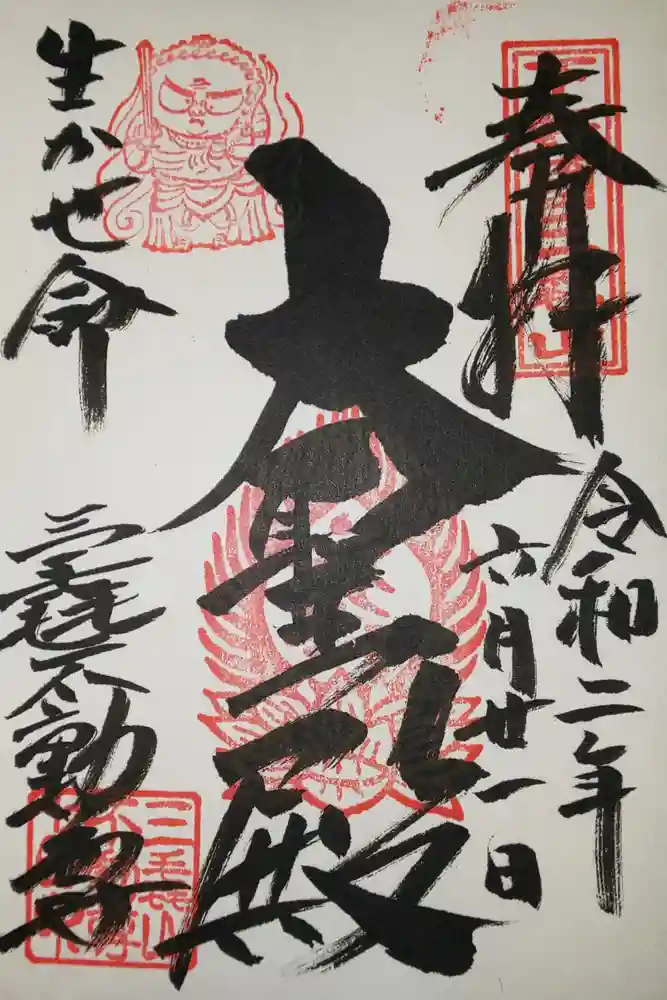 奉拝
令和二年
六月廿一日
大聖殿
生かせ命
三毳不動尊